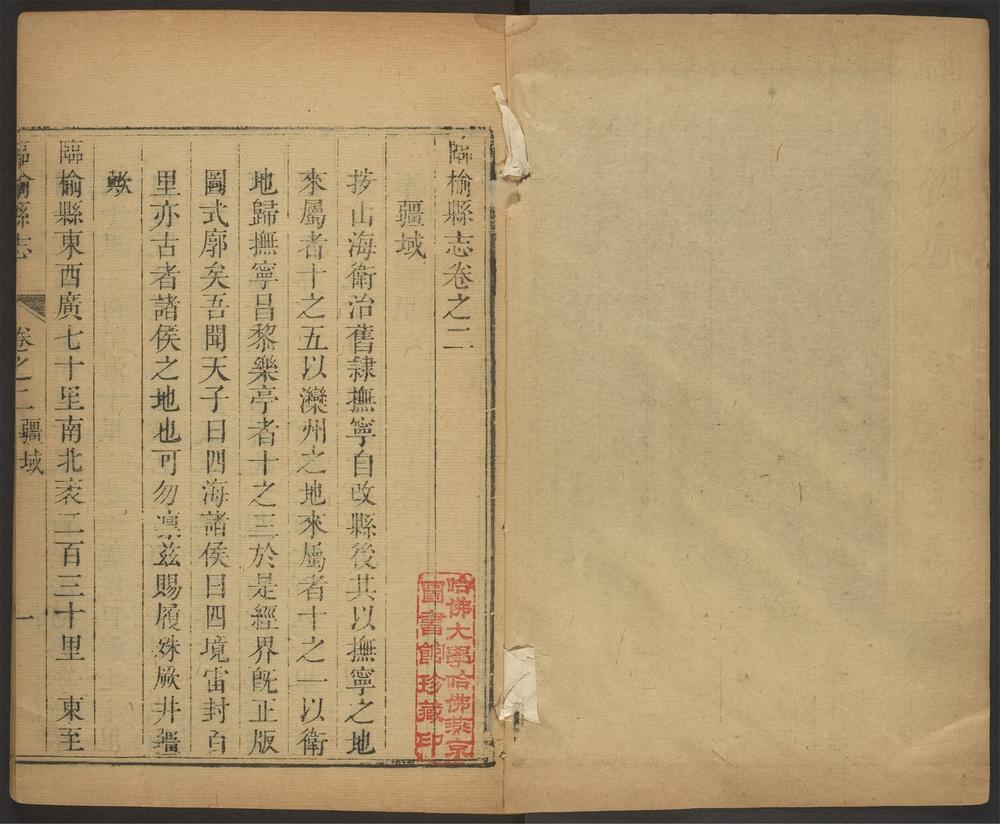 臨榆縣志卷之二
疆域
按山海衛治舊隷撫寧自改縣後其以撫寧之地
來屬者十之五以灤州之地來屬者十之一以衛
地歸撫寧昌黎樂亭者十之三於是經界旣正版
圖式廓矣吾聞天子曰四海諸侯曰四境雷封百
里亦古者諸侯之地也可勿凛兹賜履殊厥井疆
歟
臨榆縣東西廣七十里南北袤二百三十里 東至
臨榆縣志 卷之二 疆域 一
哈佛大學哈佛燕京
圖書館珍藏印